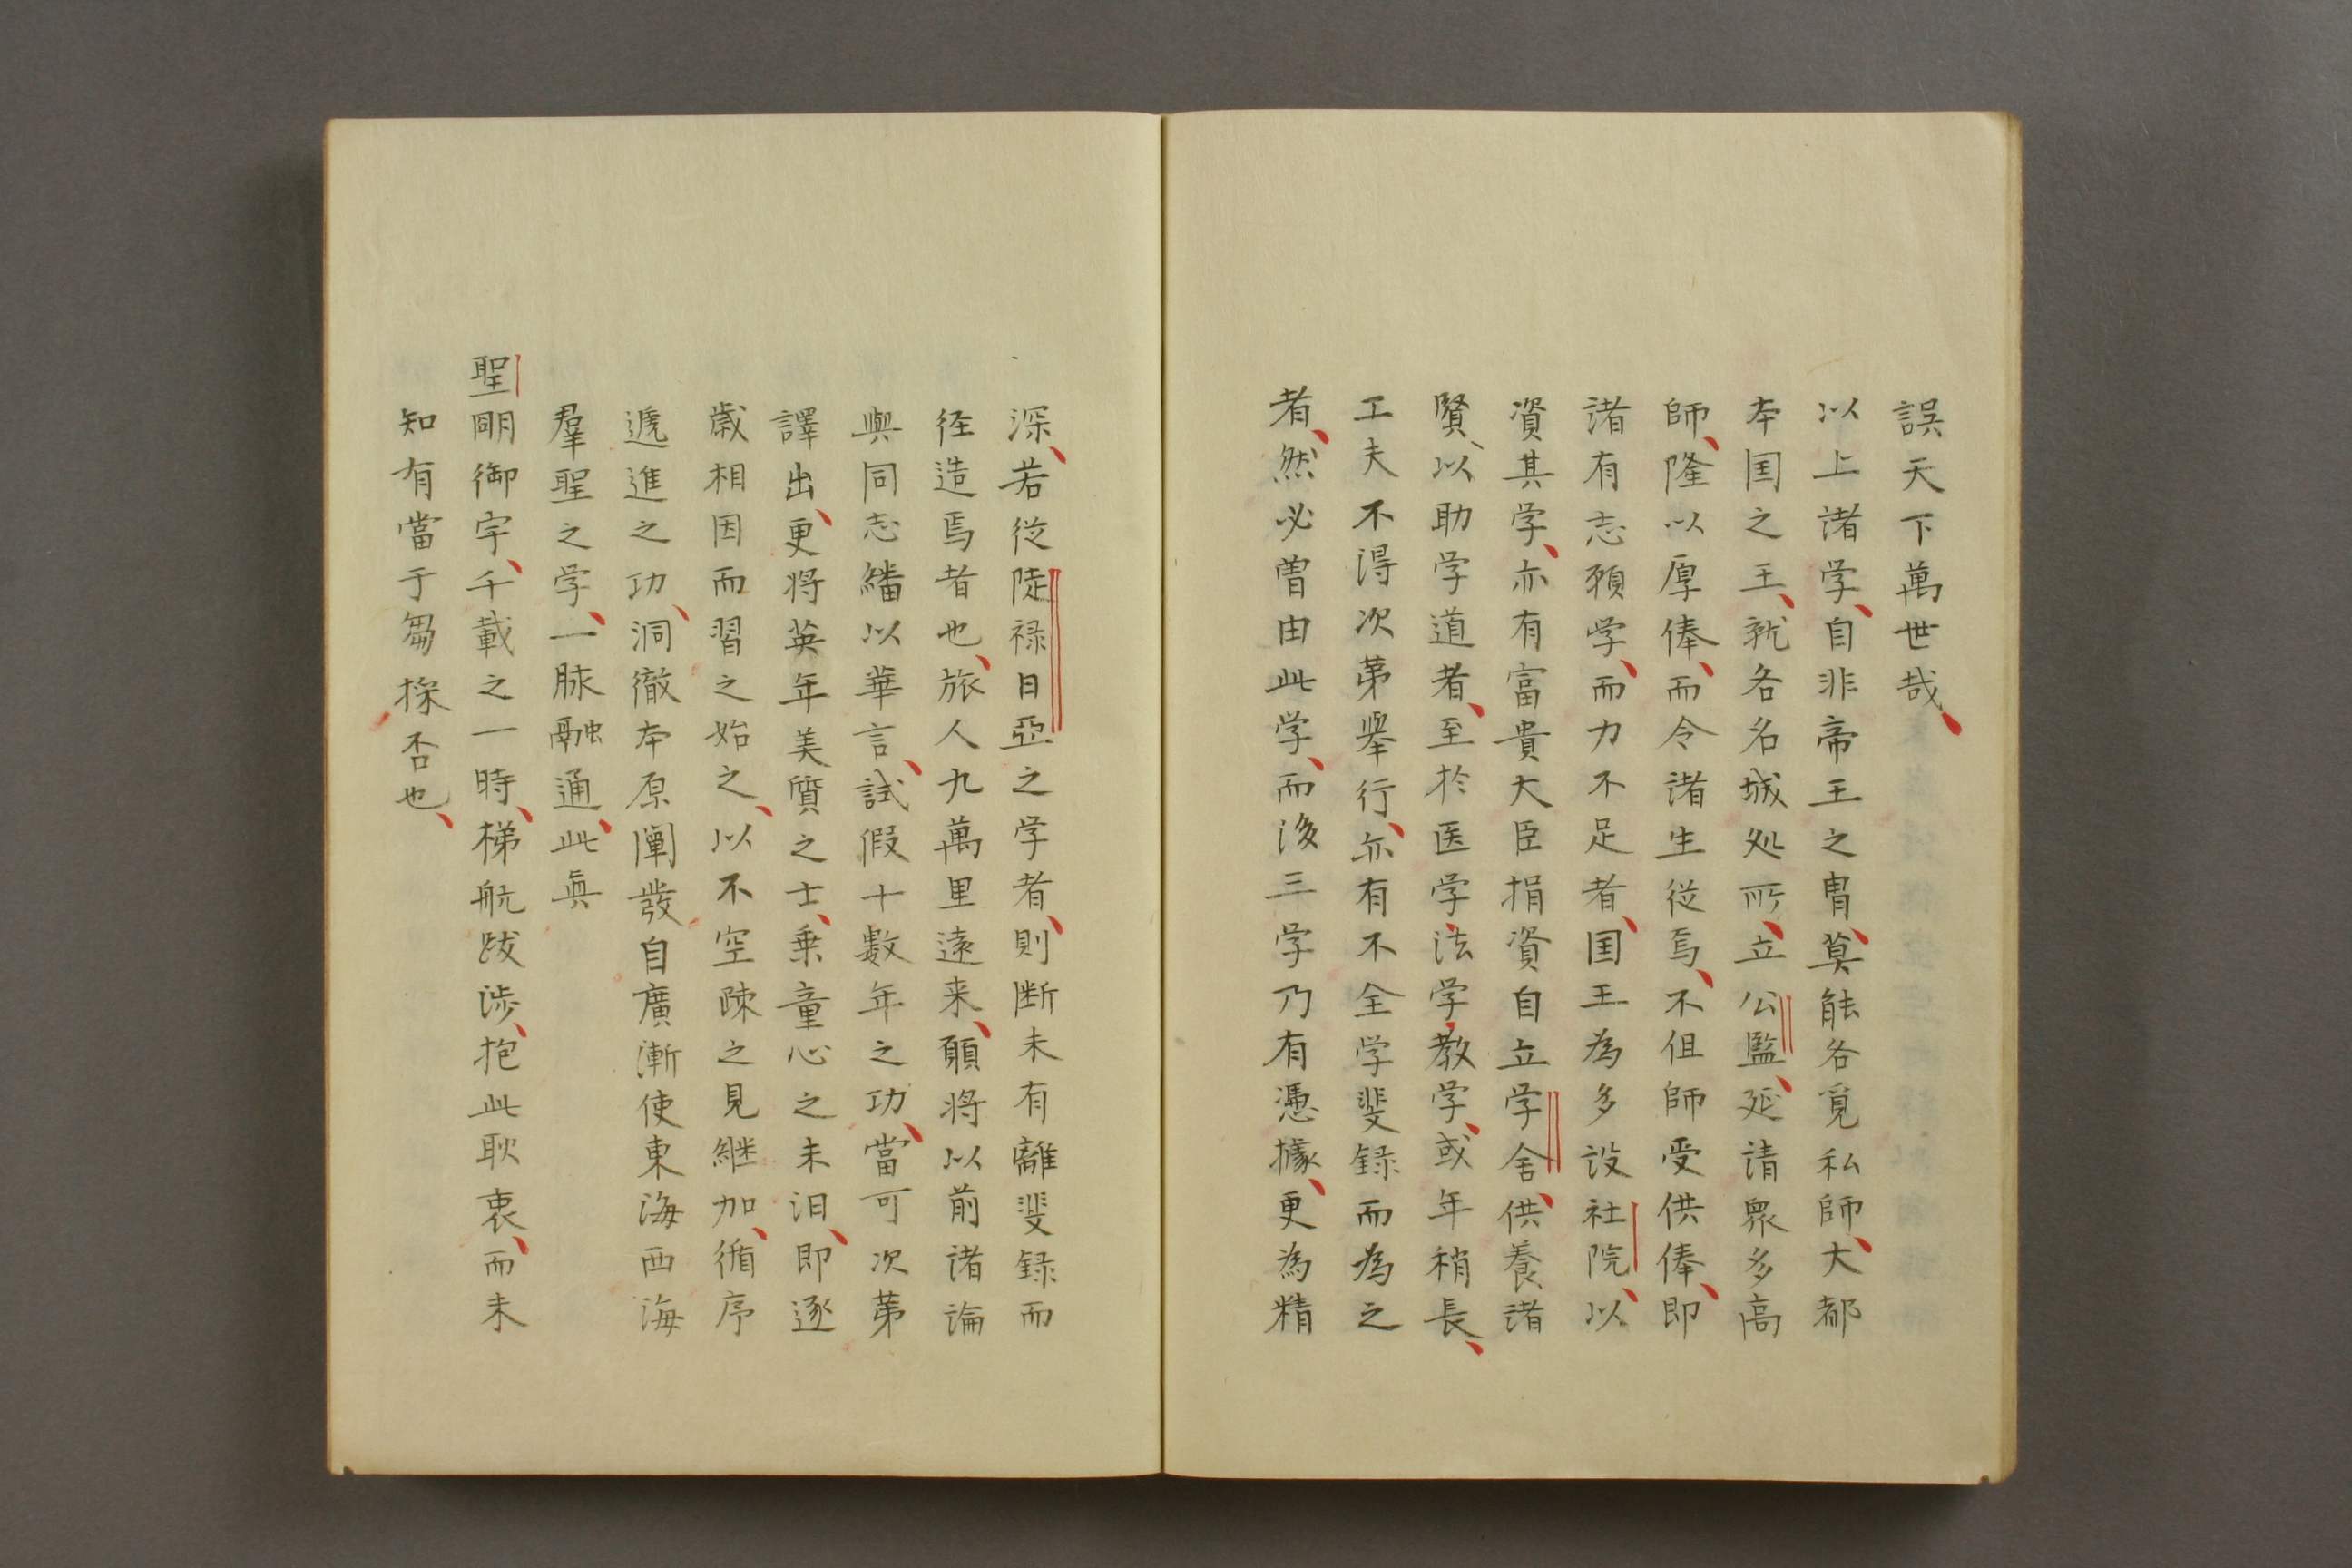 誤天下萬世哉、
以上諸学、自非帝王之冑、莫能各覓私師、大都
本国之王、就各名城処所、立公監、延請衆多高
師、隆以厚俸、而令諸生従焉、不但師受供俸、即
諸有志願学、而力不足者、国王為多設社院、以
資其学、亦有富貴大臣捐資自立学舎、供養諸
賢、以助学道者、至於医学法学教学、或年稍長、
工夫不得次第挙行、亦有不全学斐録而為之
者、然必曽由此学、而後三学乃有憑據、更為精
深、若従陡禄日亞之学者、則断未有離斐録而
径造焉者也、旅人九萬里遠来、願将以前諸論
與同志繙以華言、試假十數年之功、當可次第
譯出、更将英年美質之士、乗童心之未汨、即逐
歳相因而習之始之、以不空疎之見継加、循序
逓進之功、洞徹本原闡發自廣漸使東海西海
羣聖之学、一脉融通、此眞
聖明御宇、千載之一時、梯航跋渉、抱此耿衷、而未
知有當于芻採否也、